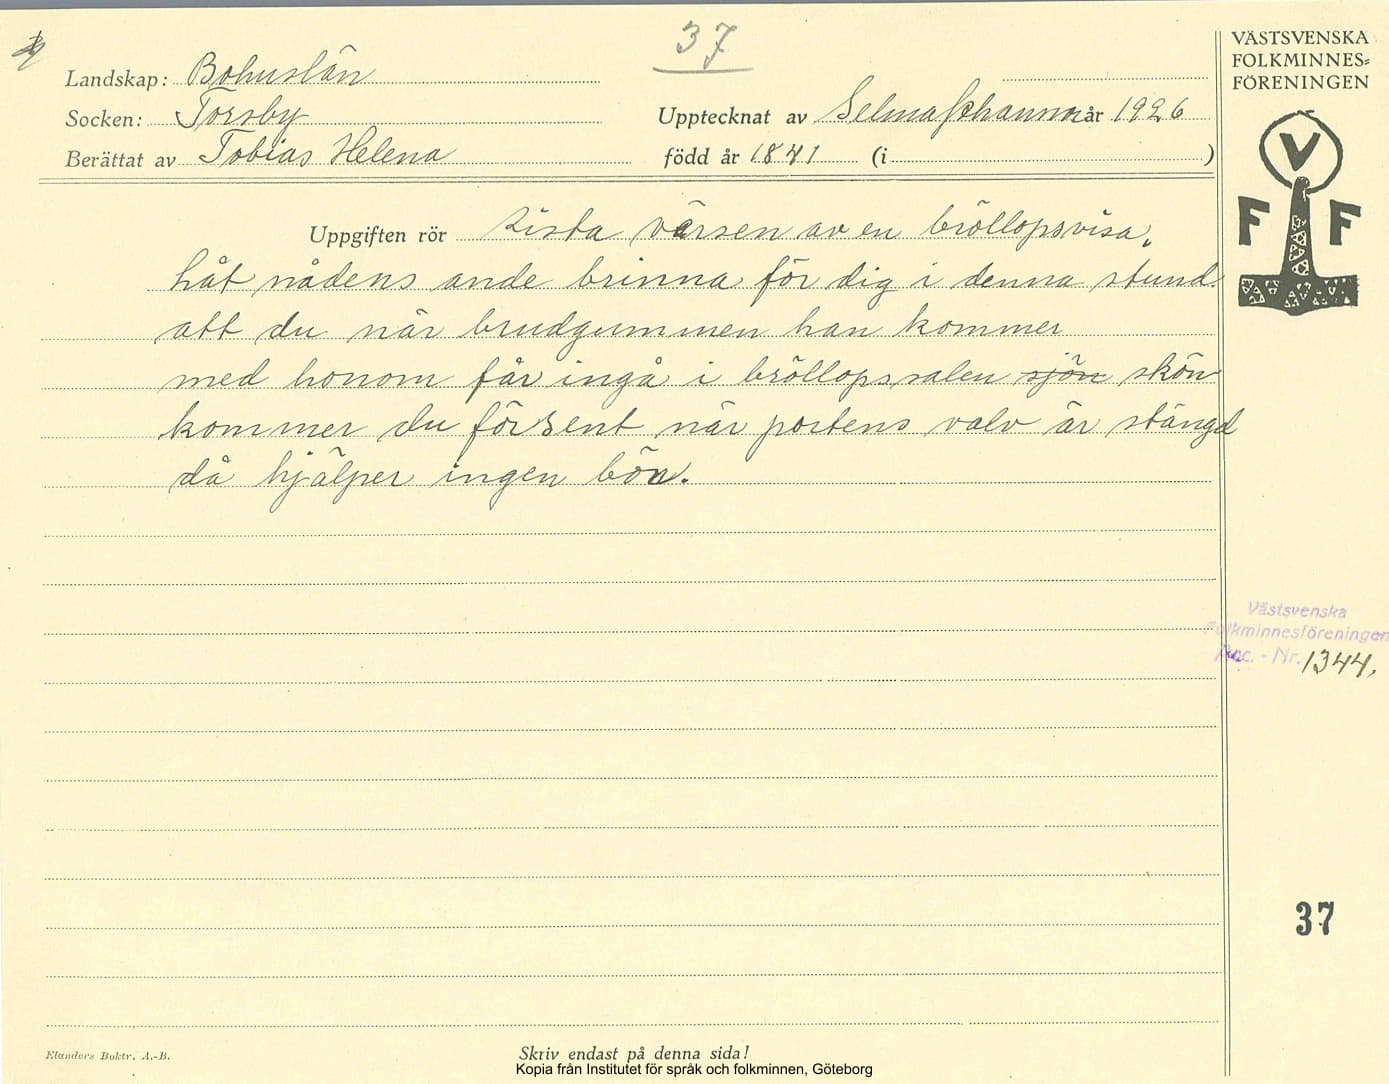 37
VÄSTSVENSKA
FOLKMINNES-
FÖRENINGEN
Landskap: Bohuslän
Socken: Torsby
Upptecknat av Selma Johanna år 1926
Berättat av Tobias Helena
född år 1841 (i )
V
F F
Uppgiften rör Sista värsen av en bröllopsvisa,
håt nådens ande brinna för dig i denna stund
att du när brudgummen han kommer
med honom får ingå i bröllopssalen sjön skön
kommer du försent när portens valv är stängd
då hjälper ingen bön.
Västsvenska
Folkminnesföreningen
Acc. - Nr. 1344,
37
Elanders Boktr. A.-B.
Skriv endast på denna sida!
Kopia från Institutet för språk och folkminnen, Göteborg